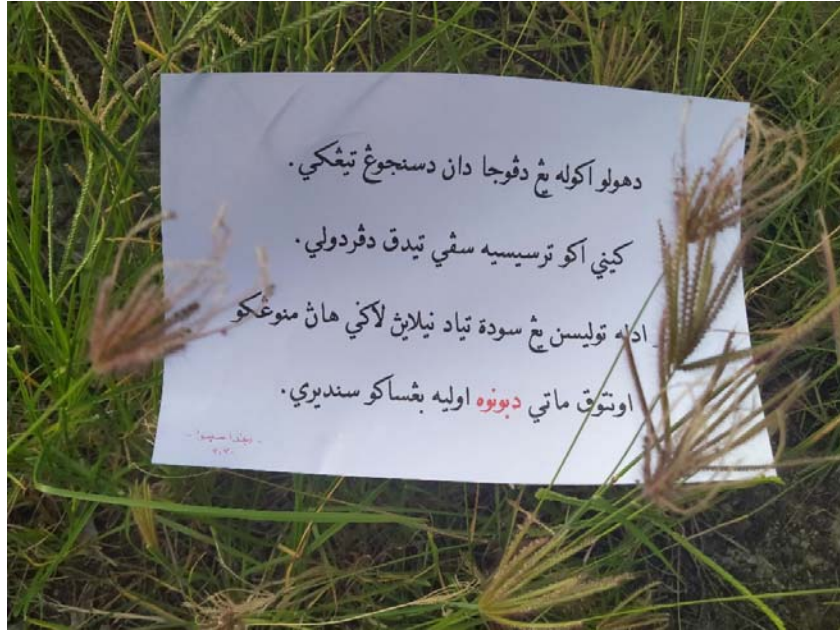 دهولو اکوله يڠ دڤوجا دان دسنجوڠ تيڠݢي.
کيني اکو ترسيسيه سڤي تيدق دڤردولي.
اداله توليسن يڠ سودة تياد نيلاين لاݢي هاڽ منوڠݢو
اونتوق ماتي دبونوه اوليه بڠساکو سنديري.
٢٠٢٠